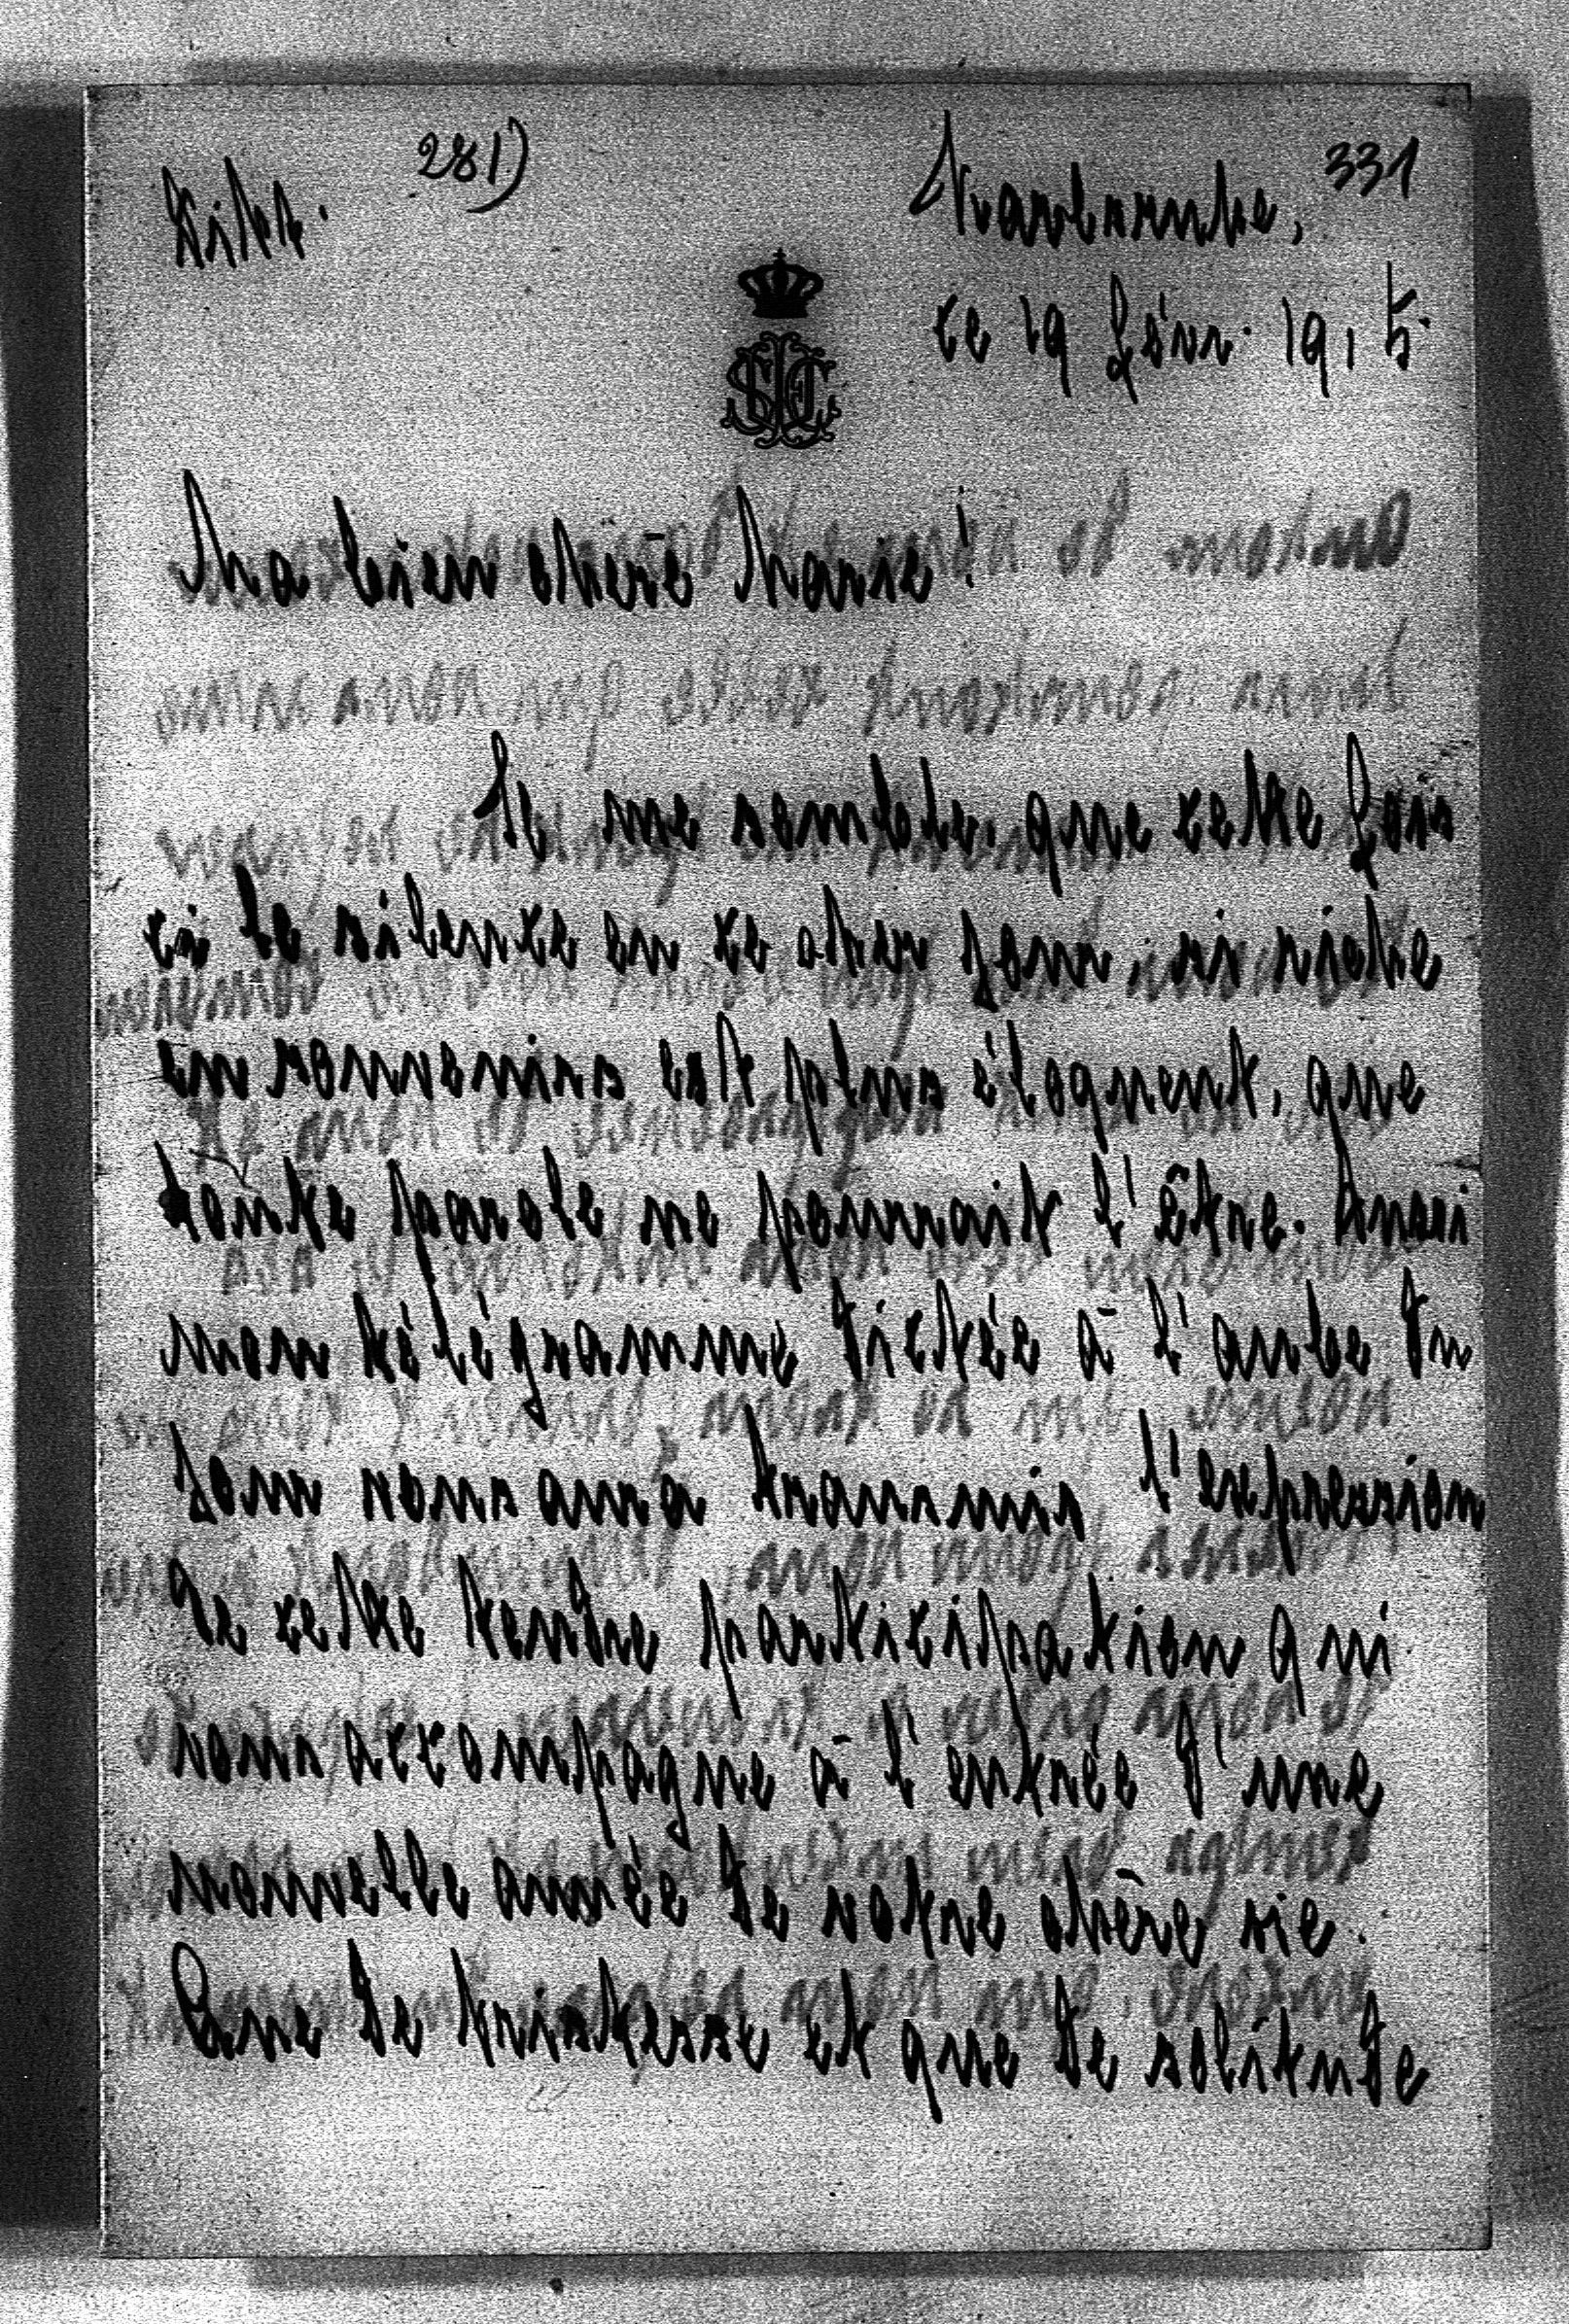 281)
331
Dikt.
Karlsruhe,
ce 19 févr. 1915.
Ma bien chère Marie!
Il me semble, que cette fois
ci le silence en ce cher jour, si riche
en souvenirs est plus éloquent, que
toute parole ne pourrait l'être. Aussi
mon télégramme dictée à l'aube du
jour vous aura transmis l'expression
de cette tendre participation qui
vous accompagne à l'entrée d'une
nouvelle année de votre chère vie.
Que de tristesse et que de solitude